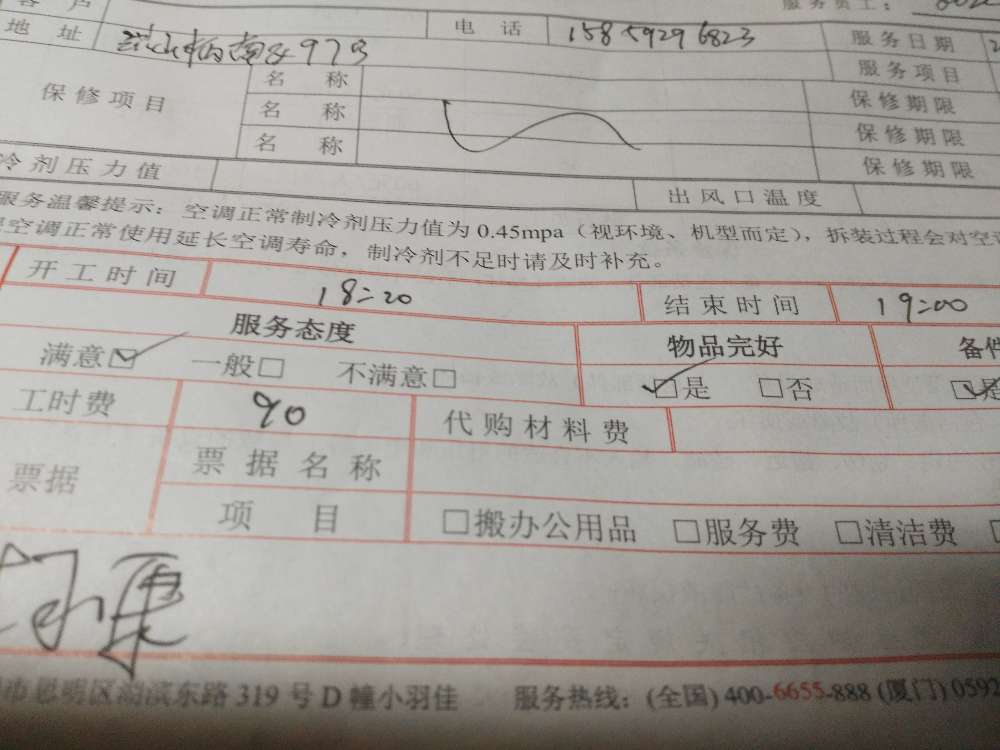 客户 服务员工：
地址 97号 电话 15859296823 服务日期
保修项目 名称 服务项目
名称 保修期限
名称 保修期限
保修期限
冷剂压力值 出风口温度
服务温馨提示：空调正常制冷剂压力值为0.45mpa（视环境、机型而定），拆装过程会对空
空调正常使用延长空调寿命，制冷剂不足时请及时补充。
开工时间 18:20 结束时间 19:00
服务态度 物品完好 备件
满意☑ 一般□ 不满意□ ☑是 □否 ☑是
工时费 90 代购材料费
票据 票据名称
项目 □搬办公用品 □服务费 □清洁费
市思明区湖滨东路319号D幢小羽佳 服务热线：(全国)400-6655-888(厦门)0592